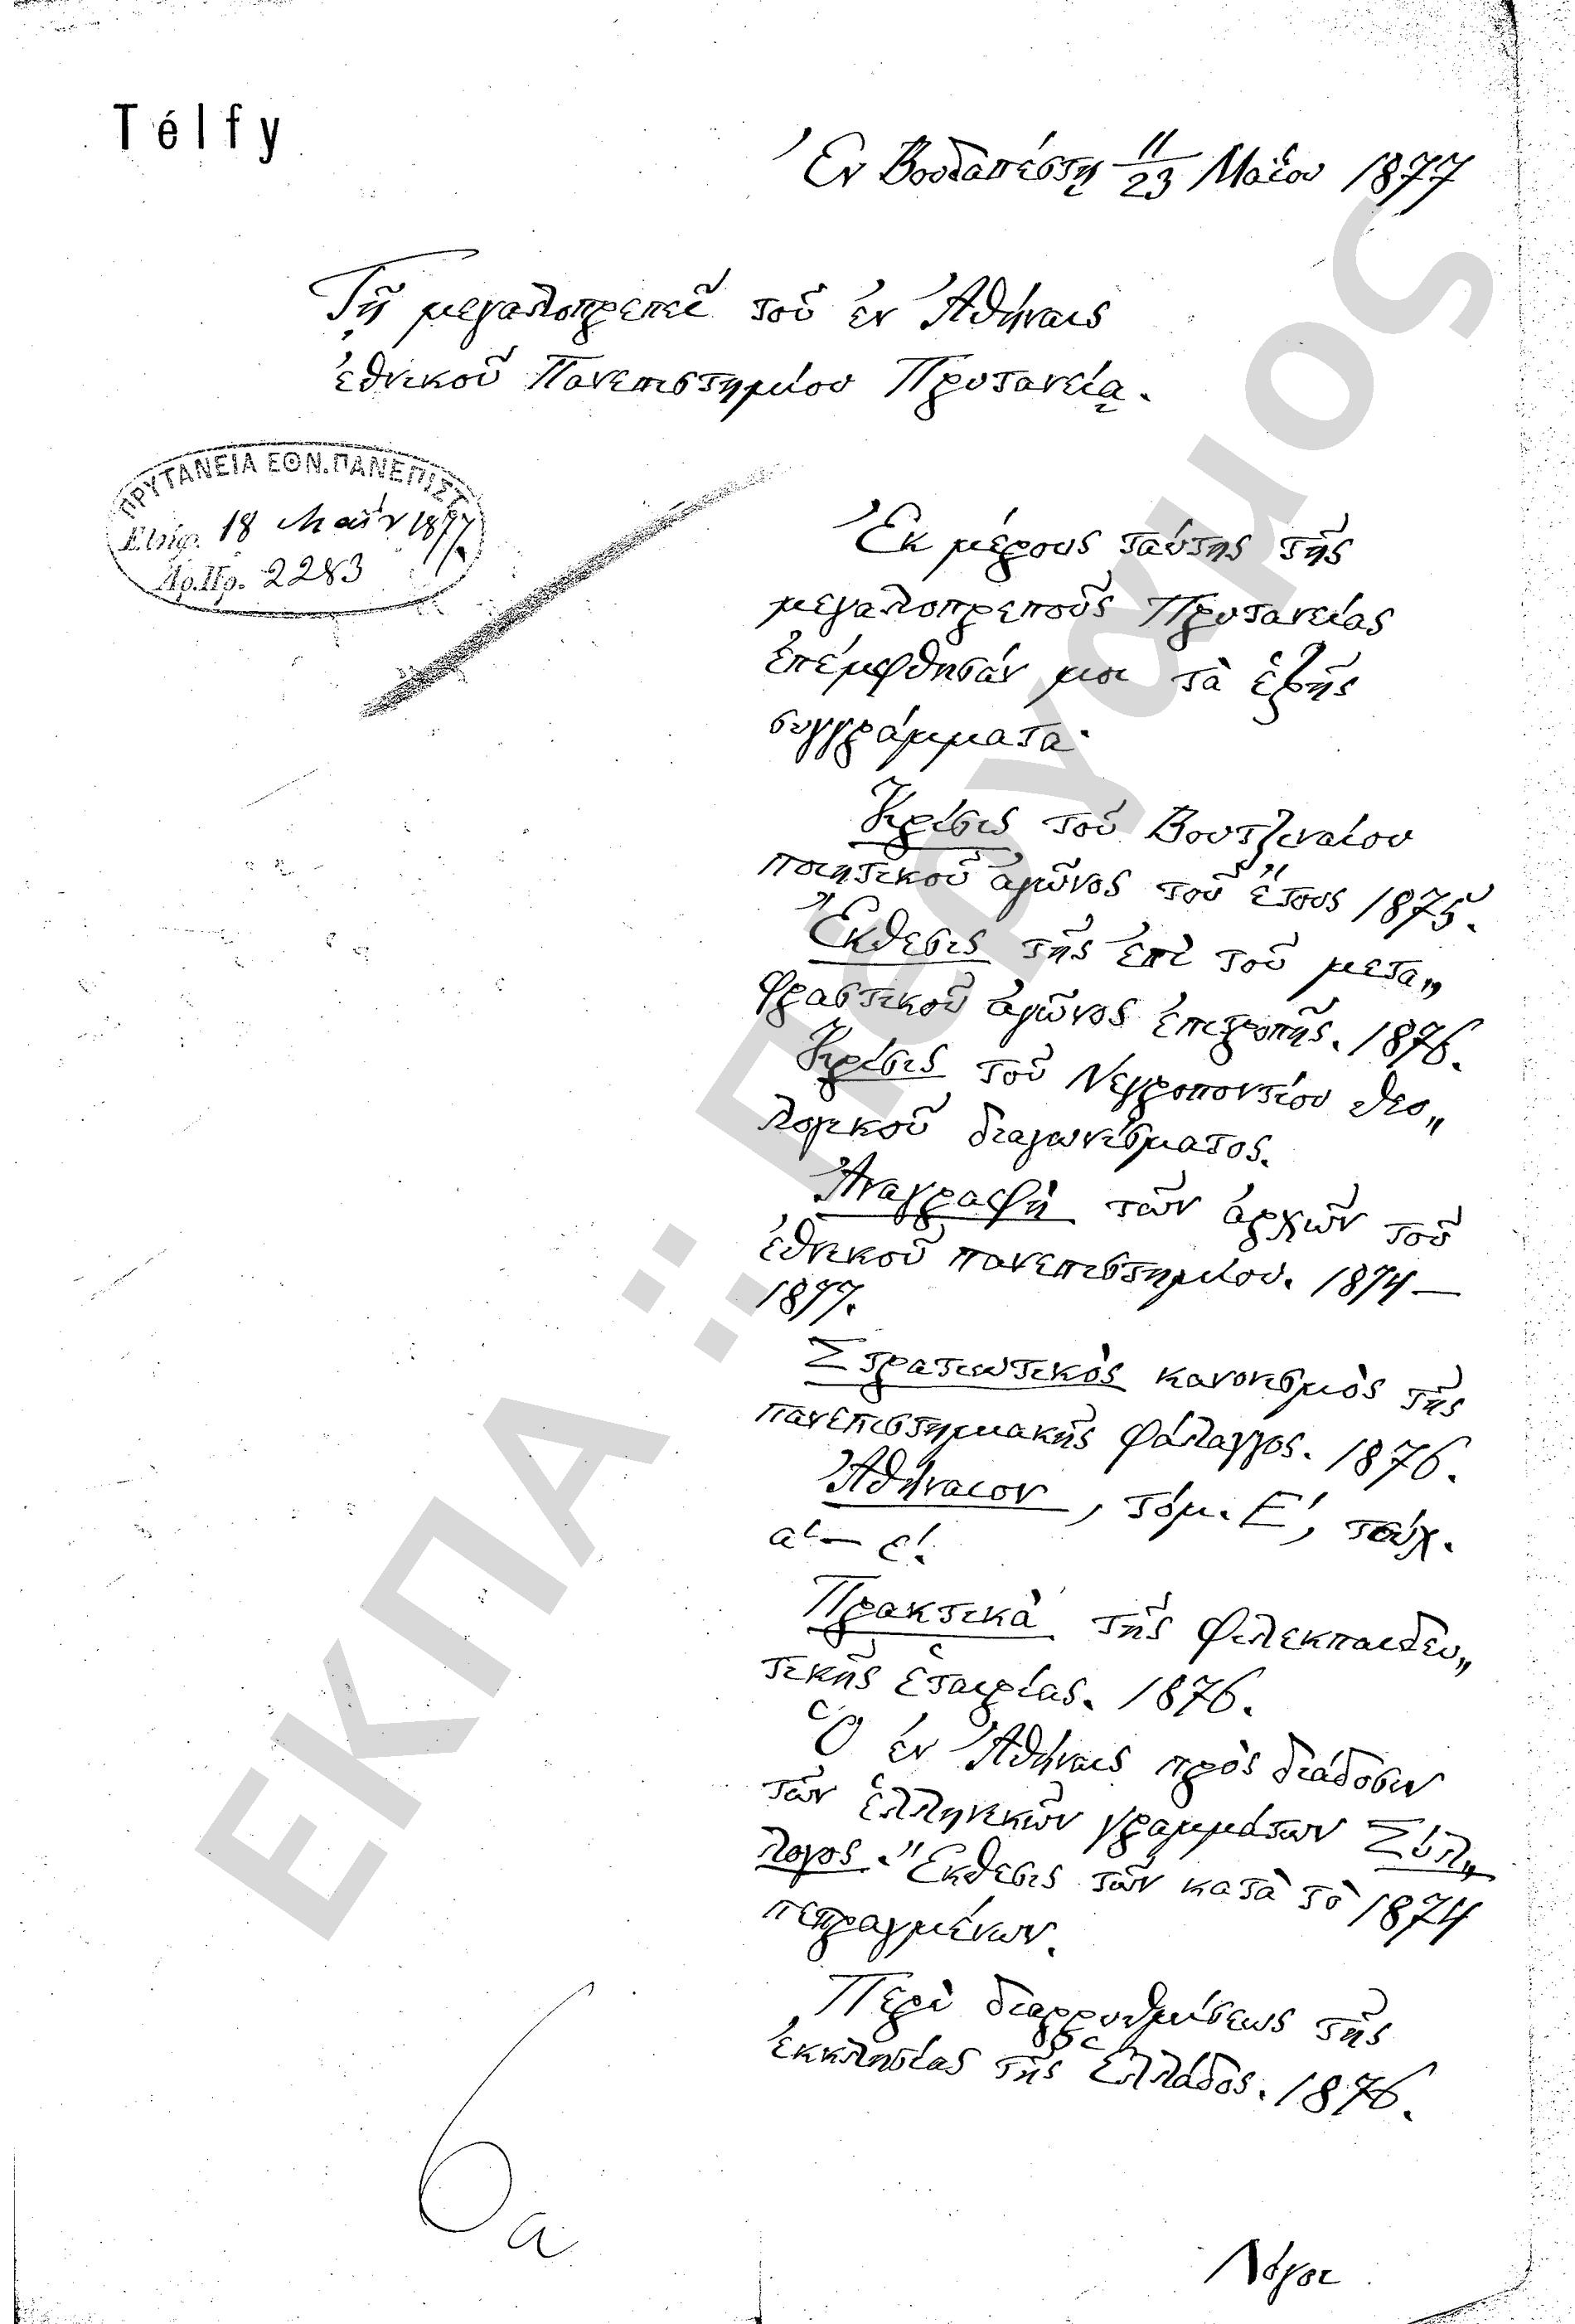 Télfy
Ἐν Βουδαπέστῃ 11/23 Μαΐου 1877
Τῇ μεγαλοπρεπεῖ τοῦ ἐν Ἀθήναις
ἐθνικοῦ Πανεπιστημίου Πρυτανείᾳ.
ΠΡΥΤΑΝΕΙΑ ΕΘΝ. ΠΑΝΕΠΙΣΤ
18 Μαΐου 1877
Αρ. Πρ. 2283
Ἐκ μέρους ταύτης τῆς
μεγαλοπρεποῦς Πρυτανείας
ἐπέμφθησάν μοι τὰ ἑξῆς
συγγράμματα·
Κρίσις τοῦ Βουτζιναίου
ποιητικοῦ ἀγῶνος τοῦ ἔτους 1875.
Ἔκθεσις τῆς ἐπὶ τοῦ μετα„
φραστικοῦ ἀγῶνος ἐπιτροπῆς. 1876.
Κρίσις τοῦ Νεγροποντίου θεο„
λογικοῦ διαγωνίσματος.
Ἀναγραφὴ τῶν ἀρχῶν τοῦ
ἐθνικοῦ πανεπιστημίου. 1874—
1877.
Στρατιωτικὸς κανονισμὸς τῆς
πανεπιστημιακῆς φάλαγγος. 1876.
Ἀθήναιον, τόμ. Ε', τεύχ.
α'— ε'.
Πρακτικὰ τῆς Φιλεκπαιδευ„
τικῆς ἑταιρίας. 1876.
Ὁ ἐν Ἀθήναις πρὸς διάδοσιν
τῶν ἑλληνικῶν γραμμάτων Σύλ„
λογος. Ἔκθεσις τῶν κατὰ τὸ 1874
πεπραγμένων.
Περὶ διαρρυθμίσεως τῆς
ἐκκλησίας τῆς Ἑλλάδος. 1876.
6α
Λόγοι
ΕΚΠΑ :: Πέργαμος